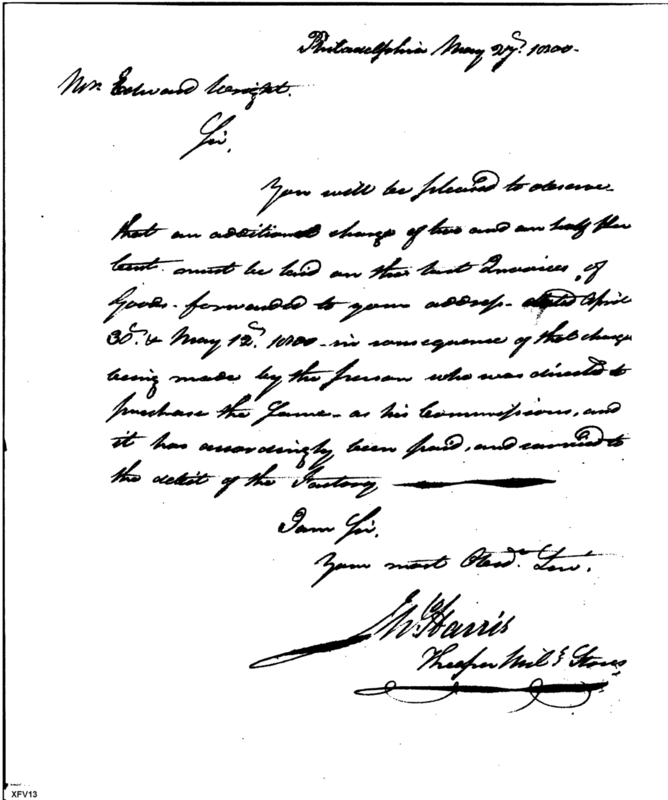 Philadelphia May 27th. 1800.
Mr. Edward Wright.
Sir,
You will be pleased to observe
that an additional charge of two and an half Per
Cent. must be laid on the last Invoices of
Goods - forwarded to your address - dated April
30th. & May 12th. 1800 - in consequence of that charge
being made by the person who was directed to
purchase the Same - as his Commissions, and
it has accordingly been paid, and carried to
the debit of the Factory
I am Sir.
Your most Obedt. Servt.
Harris
Keeper Mily. Stores
XFV13